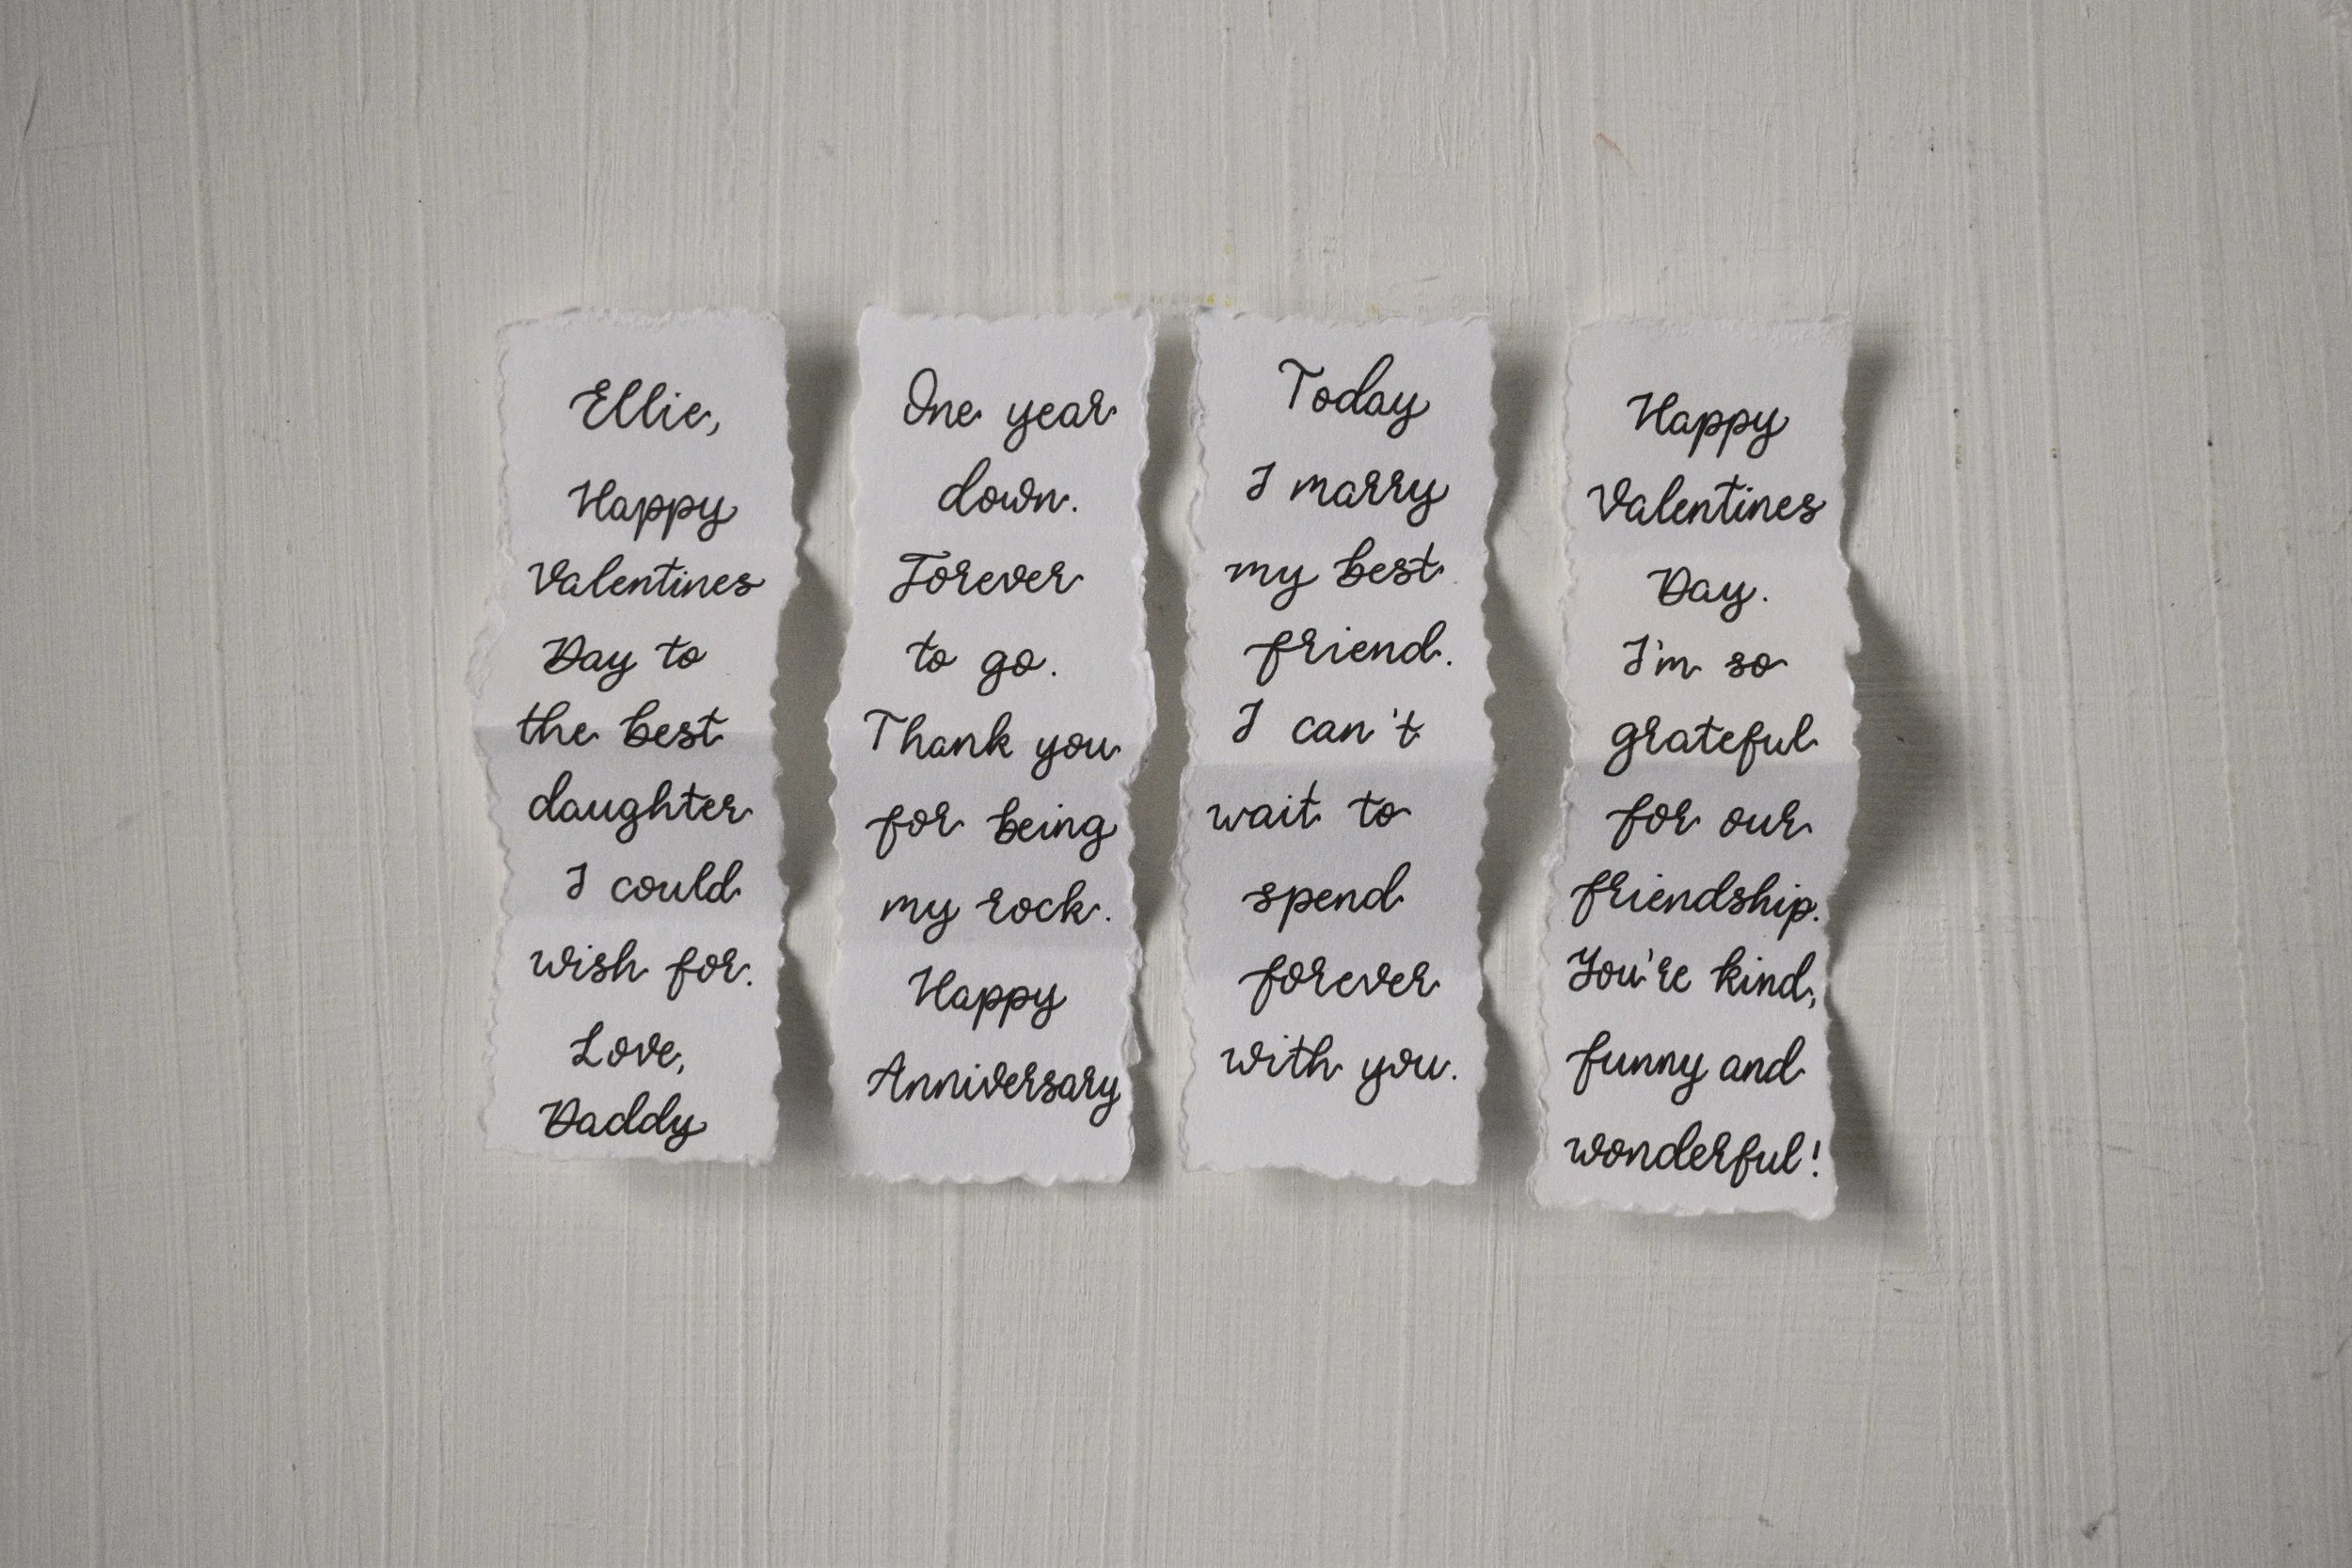 Ellie,
Happy
Valentines
Day to
the best
daughter
I could
wish for.
Love,
Daddy
One year
down.
Forever
to go.
Thank you
for being
my rock.
Happy
Anniversary
Today
I marry
my best
friend.
I can't
wait to
spend
forever
with you.
Happy
Valentines
Day.
I'm so
grateful
for our
friendship.
You're kind,
funny and
wonderful!